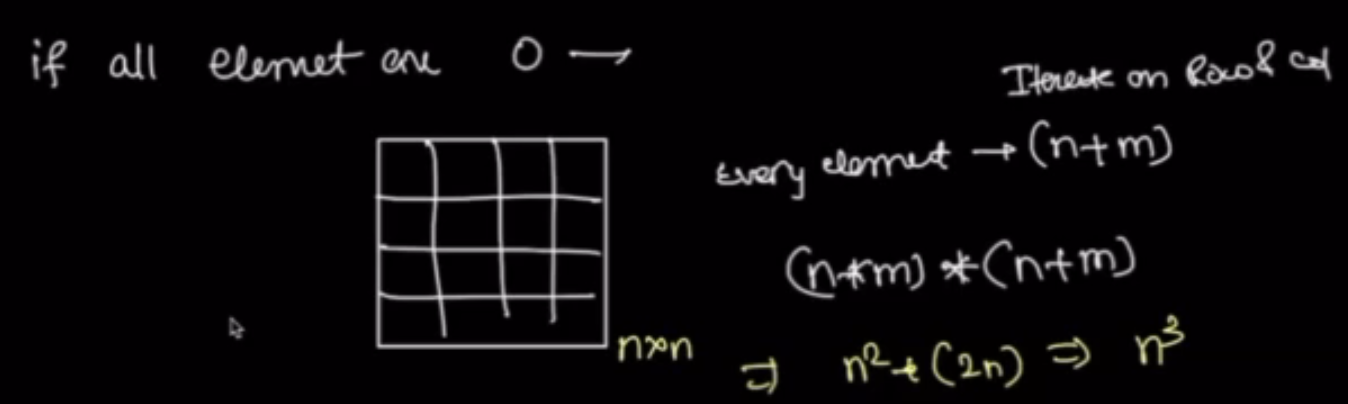 if all elemet are 0 →
Iterate on Row & col
Every elemet → (n+m)
(n*m) * (n+m)
n×n
⇒ n²*(2n) ⇒ n³